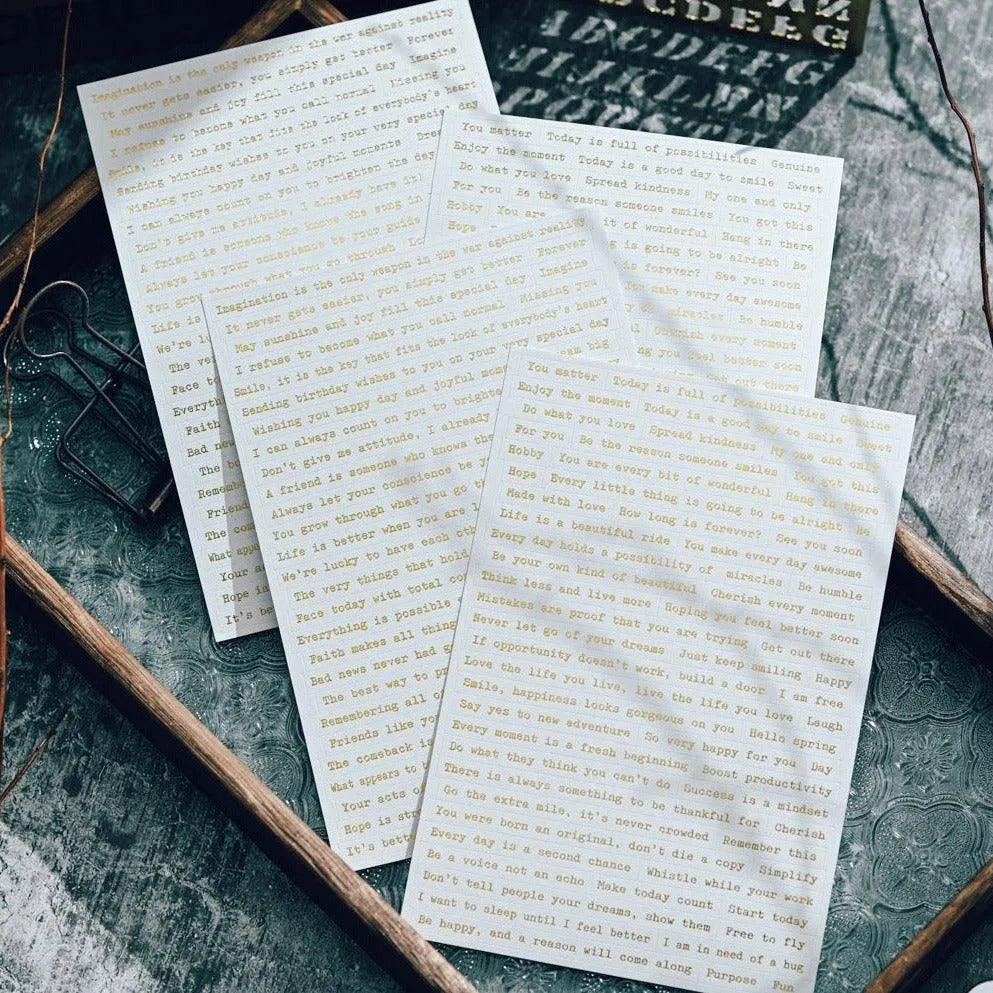 ABCDEFG
Imagination is the only weapon in the war against reality
It never gets easier, you simply get better Forever
May sunshine and joy fill this special day Imagine
I refuse to become what you call normal Missing you
Smile, it is the key that fits the lock of everybody's heart
Sending birthday wishes to you on your very special day
Wishing you happy day and joyful moments
I can always count on you to brighten the day
Don't give me attitude, I already have it!
A friend is someone who knows the song in
Always let your conscience be your guide
You grow through what you go through
Life is
We're
The
Face to
Everything
Faith
Bad
The
Remember
Friend
The
What appe
Your
Hope in
It's be
You matter Today is full of possibilities Genuine
Enjoy the moment Today is a good day to smile Sweet
Do what you love Spread kindness My one and only
For you Be the reason someone smiles You got this
Hobby You are it of wonderful Hang in there
Hope is going to be alright Be
forever? See you soon
You make every day awesome
miracles Be humble
Cherish every moment
you feel better soon
out there
Imagination is the only weapon in the war against reality
It never gets easier, you simply get better Forever
May sunshine and joy fill this special day Imagine
I refuse to become what you call normal Missing you
Smile, it is the key that fits the lock of everybody's heart
Sending birthday wishes to you on your very special day
Wishing you happy day and joyful big
I can always count on you to
Don't give me attitude, I already
A friend is someone who knows the
Always let your conscience be
You grow through what you go
Life is better when you are
We're lucky to have each
The very things that hold
Face today with total
Everything is possible
Faith makes all
Bad news never had
The best way to
Remembering all
Friends like
The comeback is
What appears to
Your acts
Hope is
It's
You matter Today is full of possibilities Genuine
Enjoy the moment Today is a good day to smile Sweet
Do what you love Spread kindness My one and only
For you Be the reason someone smiles You got this
Hobby You are every bit of wonderful Hang in there
Hope Every little thing is going to be alright Be
Made with love How long is forever? See you soon
Life is a beautiful ride You make every day awesome
Every day holds a possibility of miracles Be humble
Be your own kind of beautiful Cherish every moment
Think less and live more Hoping you feel better soon
Mistakes are proof that you are trying Get out there
Never let go of your dreams Just keep smiling Happy
If opportunity doesn't work, build a door I am free
Love the life you live, live the life you love Laugh
Smile, happiness looks gorgeous on you Hello spring
Say yes to new adventure So very happy for you Day
Every moment is a fresh beginning Boost productivity
Do what they think you can't do Success is a mindset
There is always something to be thankful for Cherish
Go the extra mile, it's never crowded Remember this
You were born an original, don't die a copy Simplify
Every day is a second chance Whistle while your work
Be a voice not an echo Make today count Start today
Don't tell people your dreams, show them Free to fly
I want to sleep until I feel better I am in need of a hug
Be happy, and a reason will come along Purpose Fun